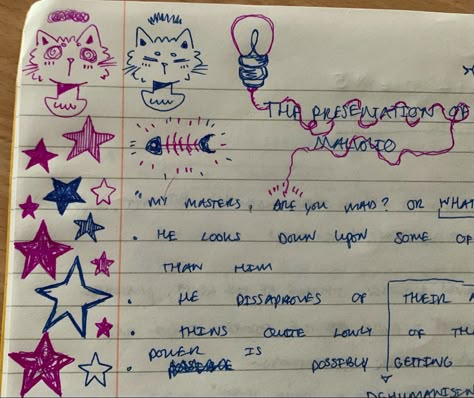 THE PRESENTATION OF
MALVOLIO
"MY MASTERS, ARE YOU MAD? OR WHAT
• HE LOOKS DOWN UPON SOME OF
THAN HIM
• HE DISSAPROVES OF THEIR
• THINS QUITE LOWLY OF
POWER IS
• POSSIBLY GETTING
DEHUMANISIN